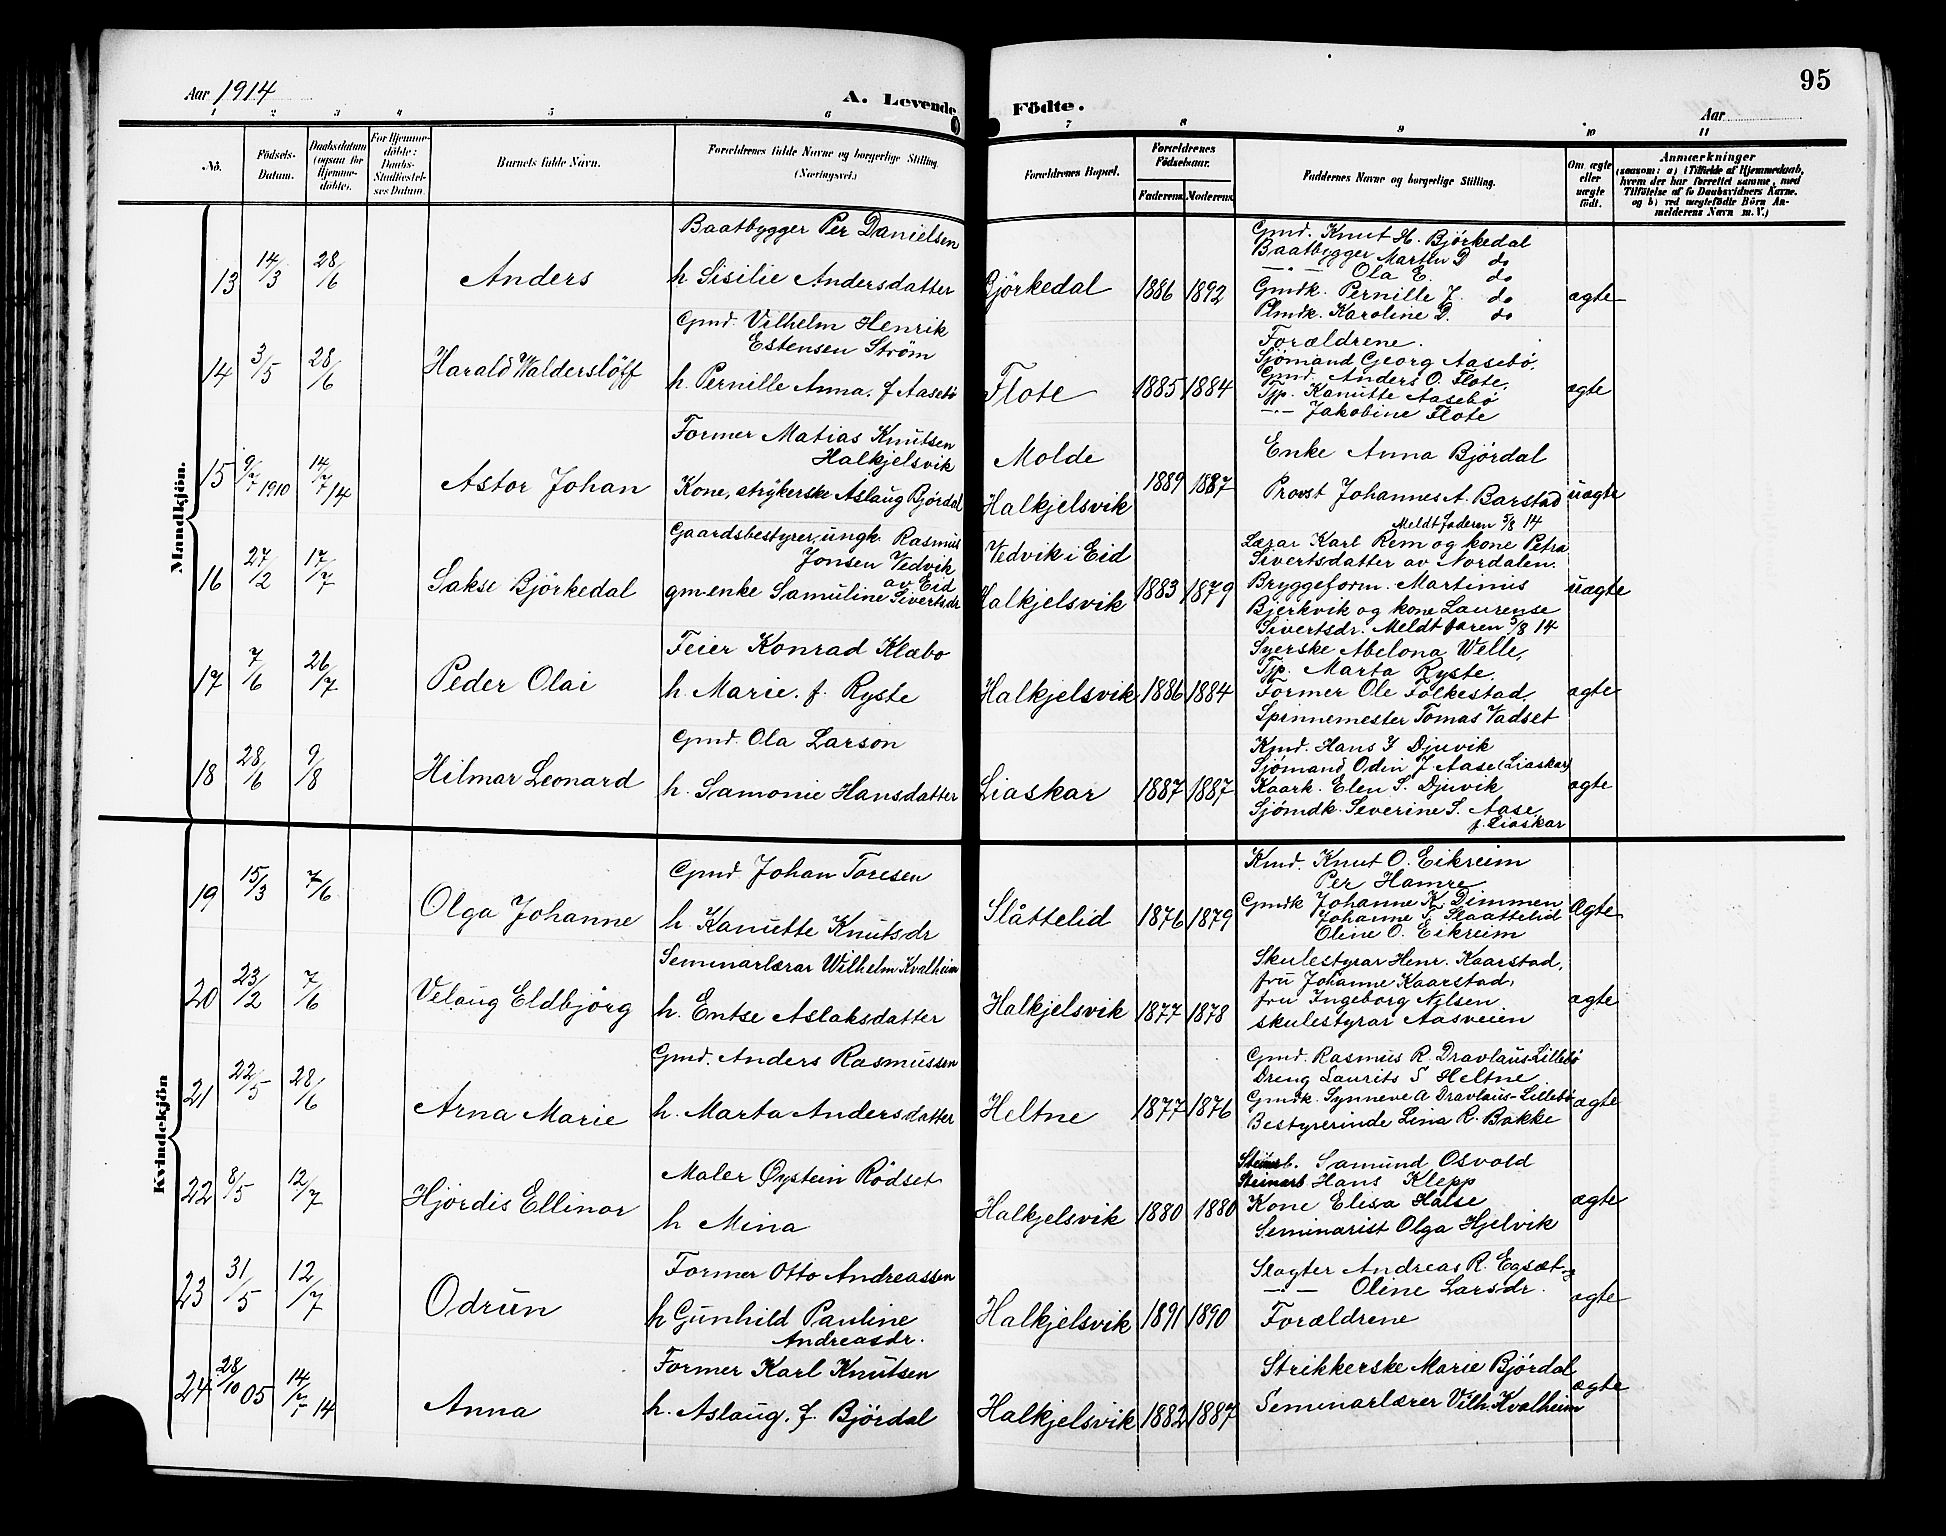 95
Aar 1914
A. Levende Födte.
Aar
1 2 3 4 5 6 7 8 9 10 11
No.
Födsels-Datum.
Daabsdatum (ogsaa for Hjemmedöbte).
For Hjemmedöbte: Daabs-Stadfæstelses Datum.
Barnets fulde Navn.
Forældrenes fulde Navne og borgerlige Stilling (Næringsvei.)
Forældrenes Bopæl.
Forældrenes Födselsaar.
Faderens Moderens
Faddernes Navne og borgerlige Stilling.
Om ægte eller uægte födt.
Anmærkninger
(saasom: a) i Tilfælde af Hjemmedaab, hvem der har forrettet samme, med Tilföielse af to Daabsvidners Navne, og b) ved uægtefödte Börn Anmelderens Navn m. V.)
Mandkjön.
13 14/3 28/6 Anders
Baatbygger Per Danielsen
h Sisilie Andersdatter
Björkedal 1886 1892
Gmd. Knut H. Björkedal
Baatbygger Martin D do
—"— Ola E. do
Gmdk. Pernille J. do
Plmdk. Karoline D. do
ægte
14 3/5 28/6 Harald Walderslöff
Gmd. Vilhelm Henrik
Estensen Ström
h. Pernille Anna. f Aasebö
Flote 1885 1884
Forældrene.
Sjömand Georg Aasebö.
Gmd. Anders O. Flote,
Tjp. Kanutte Aasebö
—"— Jakobine Flote
ægte
15 9/7 1910 14/7 14 Astor Johan
Former Matias Knutsen
Halkjelsvik
Kone, strykerske Aslaug Björdal
Molde
Halkjelsvik 1889 1887
Enke Anna Björdal
Provst Johannes A. Barstad
Meldt faderen 5/8 14
uægte
16 27/2 17/7 Sakse Björkedal
Gaardsbestyrer, ungk. Rasmus
Jonsen Vedvik
av Eid
gm-enke Samuline Sivertsdr
Vedvik i Eid
Halkjelsvik 1883 1879
Lærar Karl Rem og kone Petra
Sivertsdatter av Nordalen.
Bryggeform. Martinus
Bjerkvik og kone Laurense
Sivertsdr. Meldt faren 5/8 14
uægte
17 7/6 26/7 Peder Olai
Feier Konrad Klæbo
h. Marie. f. Ryste
Halkjelsvik 1886 1884
Syerske Abelona Welle,
Tjp. Marta Ryste.
Former Ole Folkestad.
Spinnemester Tomas Vadset
ægte
18 28/6 9/8 Hilmar Leonard
Gmd. Ola Larson
h. Samonie Hansdatter
Liaskar 1887 1887
Kmd. Hans J Djuvik
Sjömand Odin J Aase (Liaskar)
Kaark. Elen S. Djuvik
Sjömdk. Severine S. Aase,
f. Liaskar
ægte
Kvindekjön
19 15/3 7/6 Olga Johanne
Gmd. Johan Toresen
h. Kanutte Knutsdr
Slåttelid 1876 1879
Kmd. Knut O. Eikreim
Per Hamre
Gmdk Johanne K. Dimmen
Johanne T. Slaattelid
Oline O. Eikreim
Ægte
20 23/2 7/6 Velaug Eldbjörg
Seminarlærar Wilhelm Kvalheim
h. Entse Aslaksdatter
Halkjelsvik 1877 1878
Skulestyrar Henr. Kaarstad,
fru Johanne Kaarstad,
fru Ingeborg Nilsen
skulestyrar Aasveien
ægte
21 22/5 28/6 Arna Marie
Gmd. Anders Rasmussen
h. Marta Andersdatter
Heltne 1877 1876
Gmd. Rasmus R. Dravlaus-Lillebö
Dreng Laurits S Heltne
Gmdk. Synneve A Dravlaus-Lillebö
Bestyrerinde Lina R. Bakke
ægte
22 8/5 12/7 Hjördis Ellinor
Maler Øystein Rödset
h Mina
Halkjelsvik 1880 1880
Samund Osvold
Steinarb Hans Klepp
Kone Elisa Halse
Seminarist Olga Hjelvik
ægte
23 31/5 12/7 Odrun
Former Otto Andreassen
h Gunhild Pauline
Andreasdr.
Halkjelsvik 1891 1890
Slagter Andreas R. Egsæt og
—"— Oline Larsdr.
Forældrene
ægte
24 28/10 05 14/7 14 Anna
Former Karl Knutsen
h. Aslaug. f. Björdal
Halkjelsvik 1882 1887
Strikkerske Marie Björdal
Seminarlærer Vilh. Kvalheim
ægte